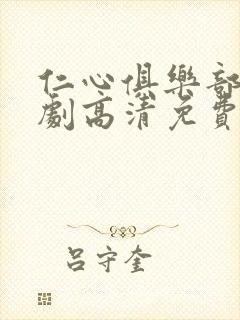 仁心俱樂部
劇高清免費
呂守奎